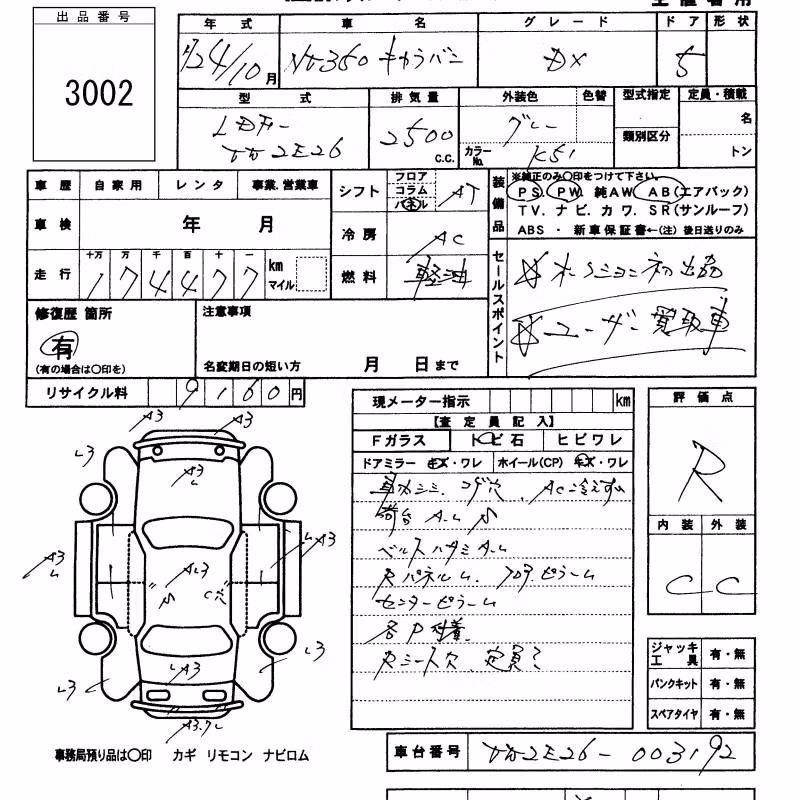 出品番号
3002
年式 車名 グレード ドア 形状
H24/10月 NV350 キャラバン DX 5
型式 排気量 外装色 色替 型式指定 定員・積載
LDF-VW2E26 2500 c.c. グレー 類別区分 名
カラーNo. K51 トン
車歴 自家用 レンタ 事業.営業車
シフト フロア コラム パネル AT
装備品 ※純正のみ〇印をつけて下さい。
PS. PW. 純AW. AB(エアバック)
TV. ナビ. カワ. SR(サンルーフ)
ABS・新車保証書←(注)後日送りのみ
車検 年 月
冷房 AC
走行 十万 万 千 百 十 一
174477 km マイル
燃料 軽油
セールスポイント
☆オークション初出品
☆ユーザー買取車
修復歴 箇所
有
(有の場合は〇印を)
注意事項
名変期日の短い方 月 日まで
リサイクル料 9160円
現メーター指示 km
【査定員記入】
Fガラス トビ石 ヒビワレ
ドアミラー キズ・ワレ ホイール(CP) キズ・ワレ
車内シミ コゲ穴、AC冷えず
荷台 A.L S
ベルスハサミA.L
RパネルL. フロアピラーL
センターピラーL
Rシート欠 定員?
評価点
R
内装 外装
C C
A3 A3
L3 A3 L3
A3 L A3 L A3
S C穴
L3 L3
L A3
ジャッキ工具 有・無
パンクキット 有・無
スペアタイヤ 有・無
事務局預り品は〇印 カギ リモコン ナビロム
車台番号 VW2E26-003192